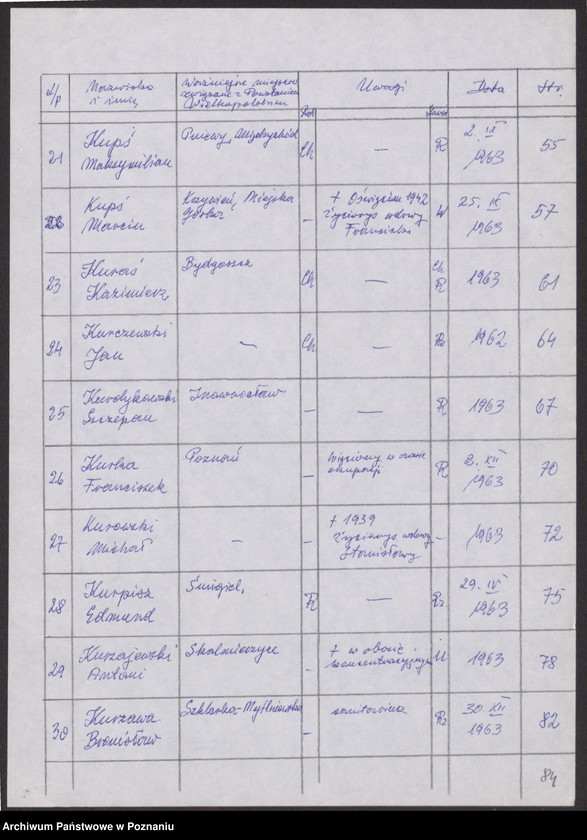 L/p
Nazwisko
i imię
Ważniejsze miejsca
związane z Powstaniem
Wielkopolskim
Uwagi
Data
Str.
21
Kupś
Maksymilian
Pniewy, Międzychód
Ch
—
R
2. IX
1963
55
22
Kupś
Marcin
Krzywiń, Miejska
Górka
–
+ Oświęcim 1942
Życiorys wdowy
Franciszki
W
25. IX
1963
57
23
Kuraś
Kazimierz
Bydgoszcz
Ch
—
Ch
R
1963
61
24
Kurczewski
Jan
—
Ch
—
Rz
1962
64
25
Kurdykowski
Szczepan
Inowrocław
–
—
R
1963
67
26
Kurka
Franciszek
Poznań
–
więziony w czasie
okupacji
R
2. XII
1963
70
27
Kurowski
Michał
–
–
+ 1939
Życiorys wdowy
Stanisławy
–
1963
72
28
Kurpisz
Edmund
Śmigiel,
R
—
Rz
29. IV
1963
75
29
Kurzajewski
Antoni
Skalmierzyce
–
+ w obozie
koncentracyjnym
U
1963
78
30
Kurzawa
Bronisław
Szklarka-Myślniewska
–
Rz
30. XII
1963
82
84
Archiwum Państwowe w Poznaniu